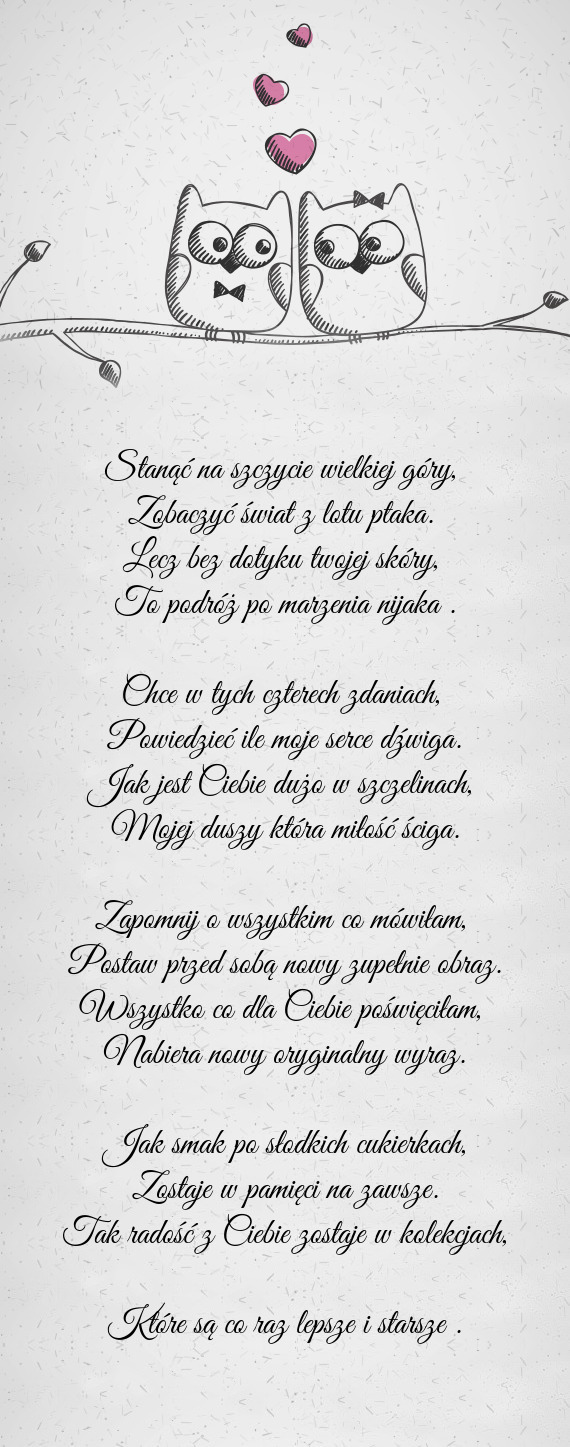 Stanąć na szczycie wielkiej góry,
Zobaczyć świat z lotu ptaka.
Lecz bez dotyku twojej skóry,
To podróż po marzenia nijaka .
Chce w tych czterech zdaniach,
Powiedzieć ile moje serce dźwiga.
Jak jest Ciebie dużo w szczelinach,
Mojej duszy która miłość ściga.
Zapomnij o wszystkim co mówiłam,
Postaw przed sobą nowy zupełnie obraz.
Wszystko co dla Ciebie poświęciłam,
Nabiera nowy oryginalny wyraz.
Jak smak po słodkich cukierkach,
Zostaje w pamięci na zawsze.
Tak radość z Ciebie zostaje w kolekcjach,
Które są co raz lepsze i starsze .